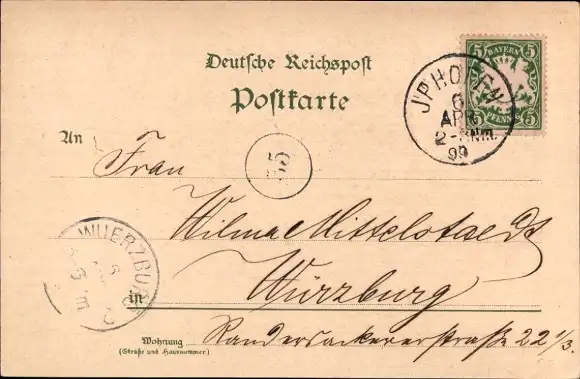 5 BAYERN 5
5 PFENNIG 5
Deutsche Reichspost
Postkarte
JPHOFEN
6
APR
2-3NM.
99
An Frau
35
Wilma Mittelstaedt
WUERZBURG 2
in Würzburg
Wohnung Randersackererstraße 22 1/3.
(Straße und Hausnummer.)